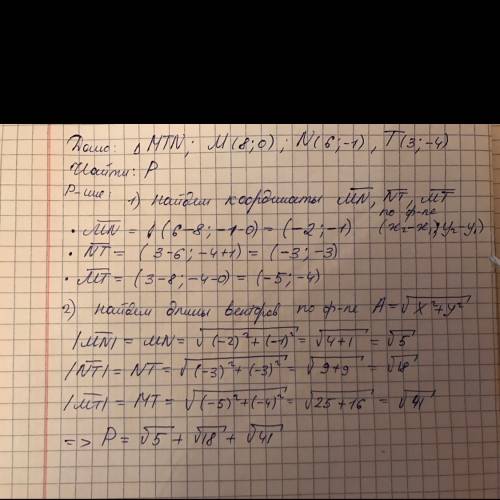 Дано: △ MTN; M(8;0); N(6;-1), T(3;-4)
Найти: P
Р-ние: 1) найдем координаты MN, NT, MT
по ф-ле
(x₂-x₁; y₂-y₁)
• MN = (6-8; -1-0) = (-2; -1)
• NT = (3-6; -4+1) = (-3; -3)
• MT = (3-8; -4-0) = (-5; -4)
2) найдем длины векторов по ф-ле A=√x²+y²
|MN| = MN = √(-2)²+(-1)² = √4+1 = √5
|NT| = NT = √(-3)²+(-3)² = √9+9 = √18
|MT| = MT = √(-5)²+(-4)² = √25+16 = √41
=> P = √5 + √18 + √41